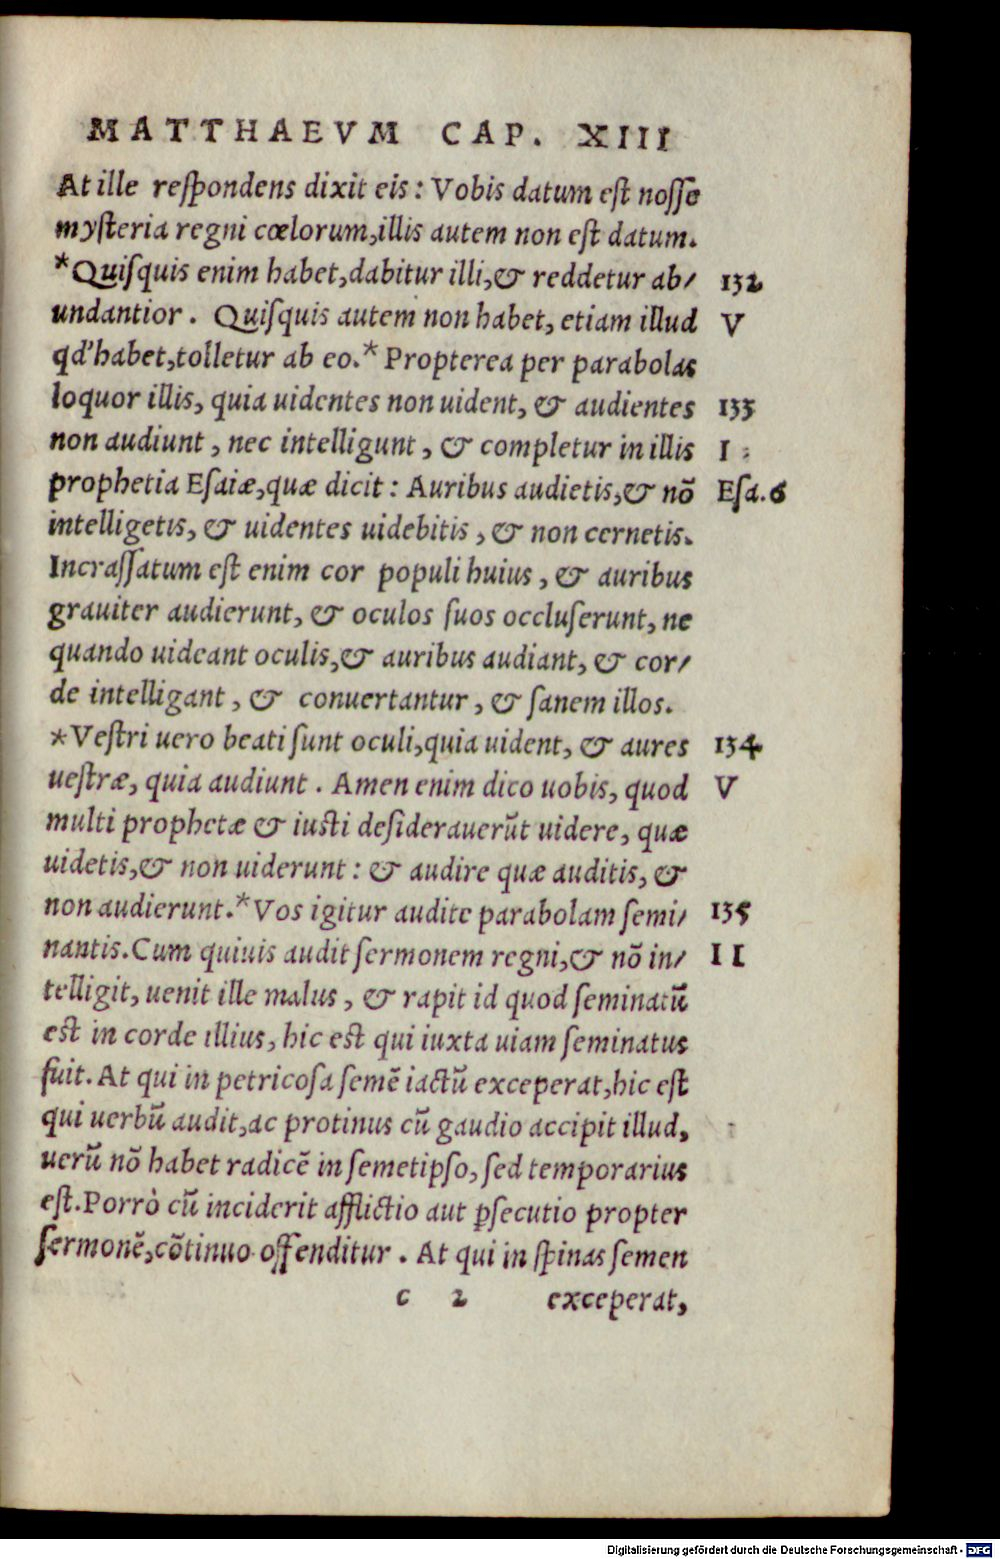 MATTHAEVM CAP. XIII
At ille respondens dixit eis: Vobis datum est nosse
mysteria regni cœlorum, illis autem non est datum.
*Quisquis enim habet, dabitur illi, & reddetur ab/ 132
undantior. Quisquis autem non habet, etiam illud V
qd' habet, tolletur ab eo.* Propterea per parabolas
loquor illis, quia uidentes non uident, & audientes 133
non audiunt, nec intelligunt, & completur in illis I
prophetia Esaiæ, quæ dicit: Auribus audietis, & nō Esa.6
intelligetis, & uidentes uidebitis, & non cernetis.
Incrassatum est enim cor populi huius, & auribus
grauiter audierunt, & oculos suos occluserunt, ne
quando uideant oculis, & auribus audiant, & cor/
de intelligant, & conuertantur, & sanem illos.
*Vestri uero beati sunt oculi, quia uident, & aures 134
uestræ, quia audiunt. Amen enim dico uobis, quod V
multi prophetæ & iusti desiderauerūt uidere, quæ
uidetis, & non uiderunt: & audire quæ auditis, &
non audierunt.* Vos igitur audite parabolam semi/ 135
nantis. Cum quiuis audit sermonem regni, & nō in/ II
telligit, uenit ille malus, & rapit id quod seminatū
est in corde illius, hic est qui iuxta uiam seminatus
fuit. At qui in petricosa semē iactū exceperat, hic est
qui uerbū audit, ac protinus cū gaudio accipit illud,
uerū nō habet radicē in semetipso, sed temporarius
est. Porrò cū inciderit afflictio aut ꝑsecutio propter
sermonē, cōtinuo offenditur. At qui in spinas semen
c 2 exceperat,
Digitalisierung gefördert durch die Deutsche Forschungsgemeinschaft - DFG